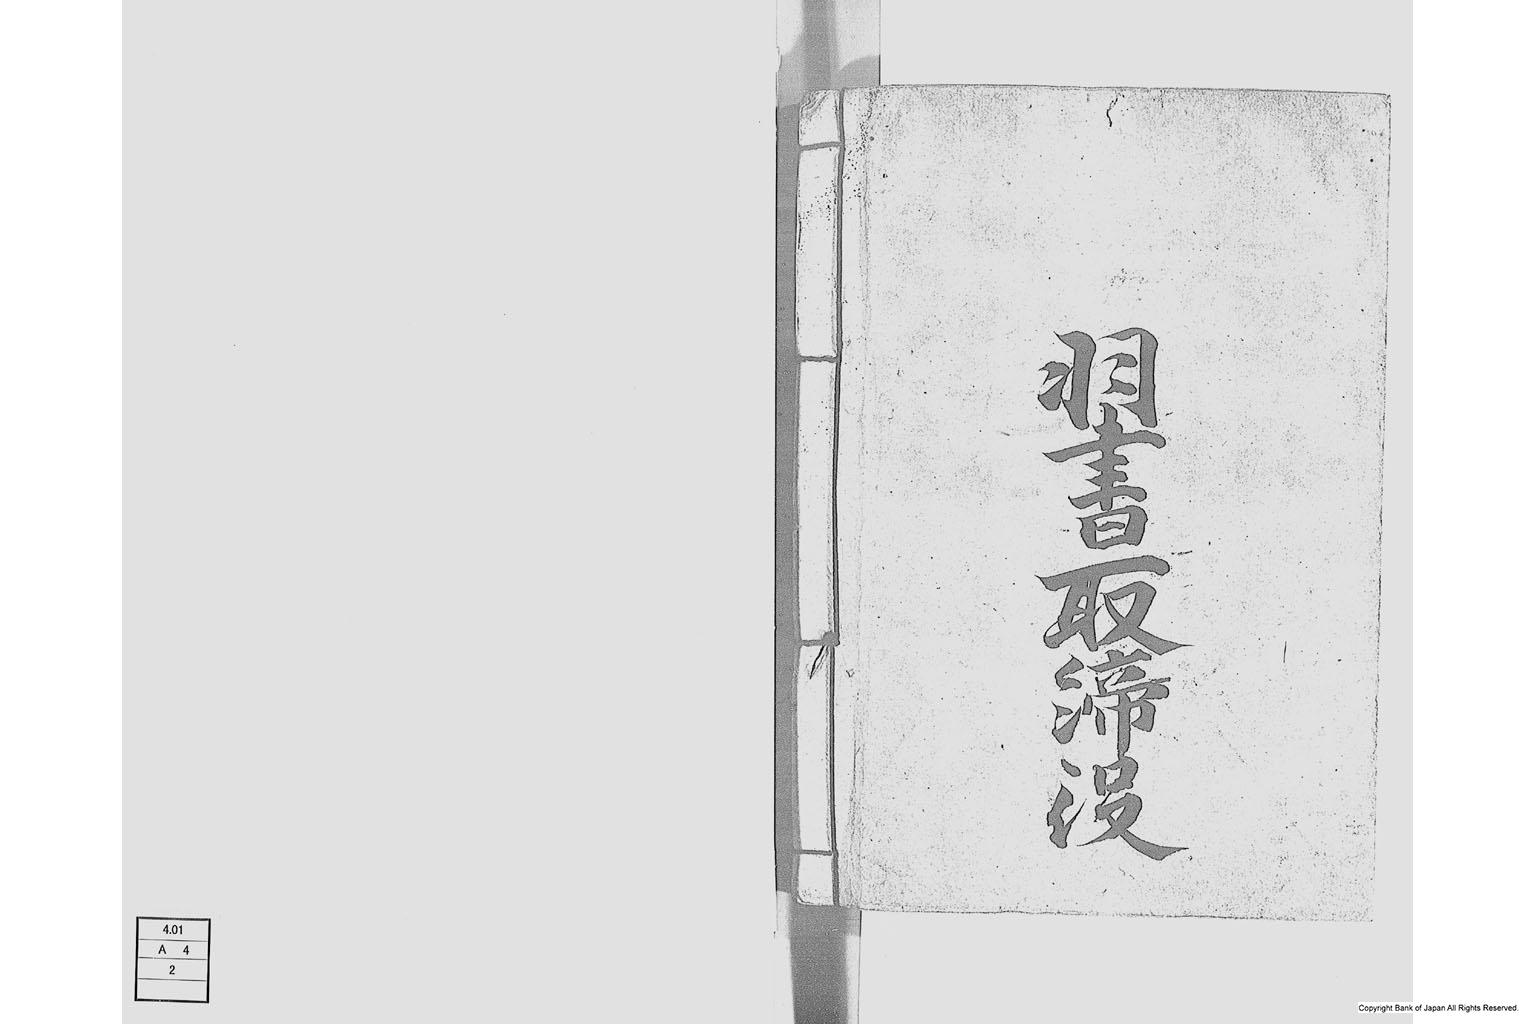 羽書取締役
4.01
A 4
2
Copyright Bank of Japan All Rights Reserved.